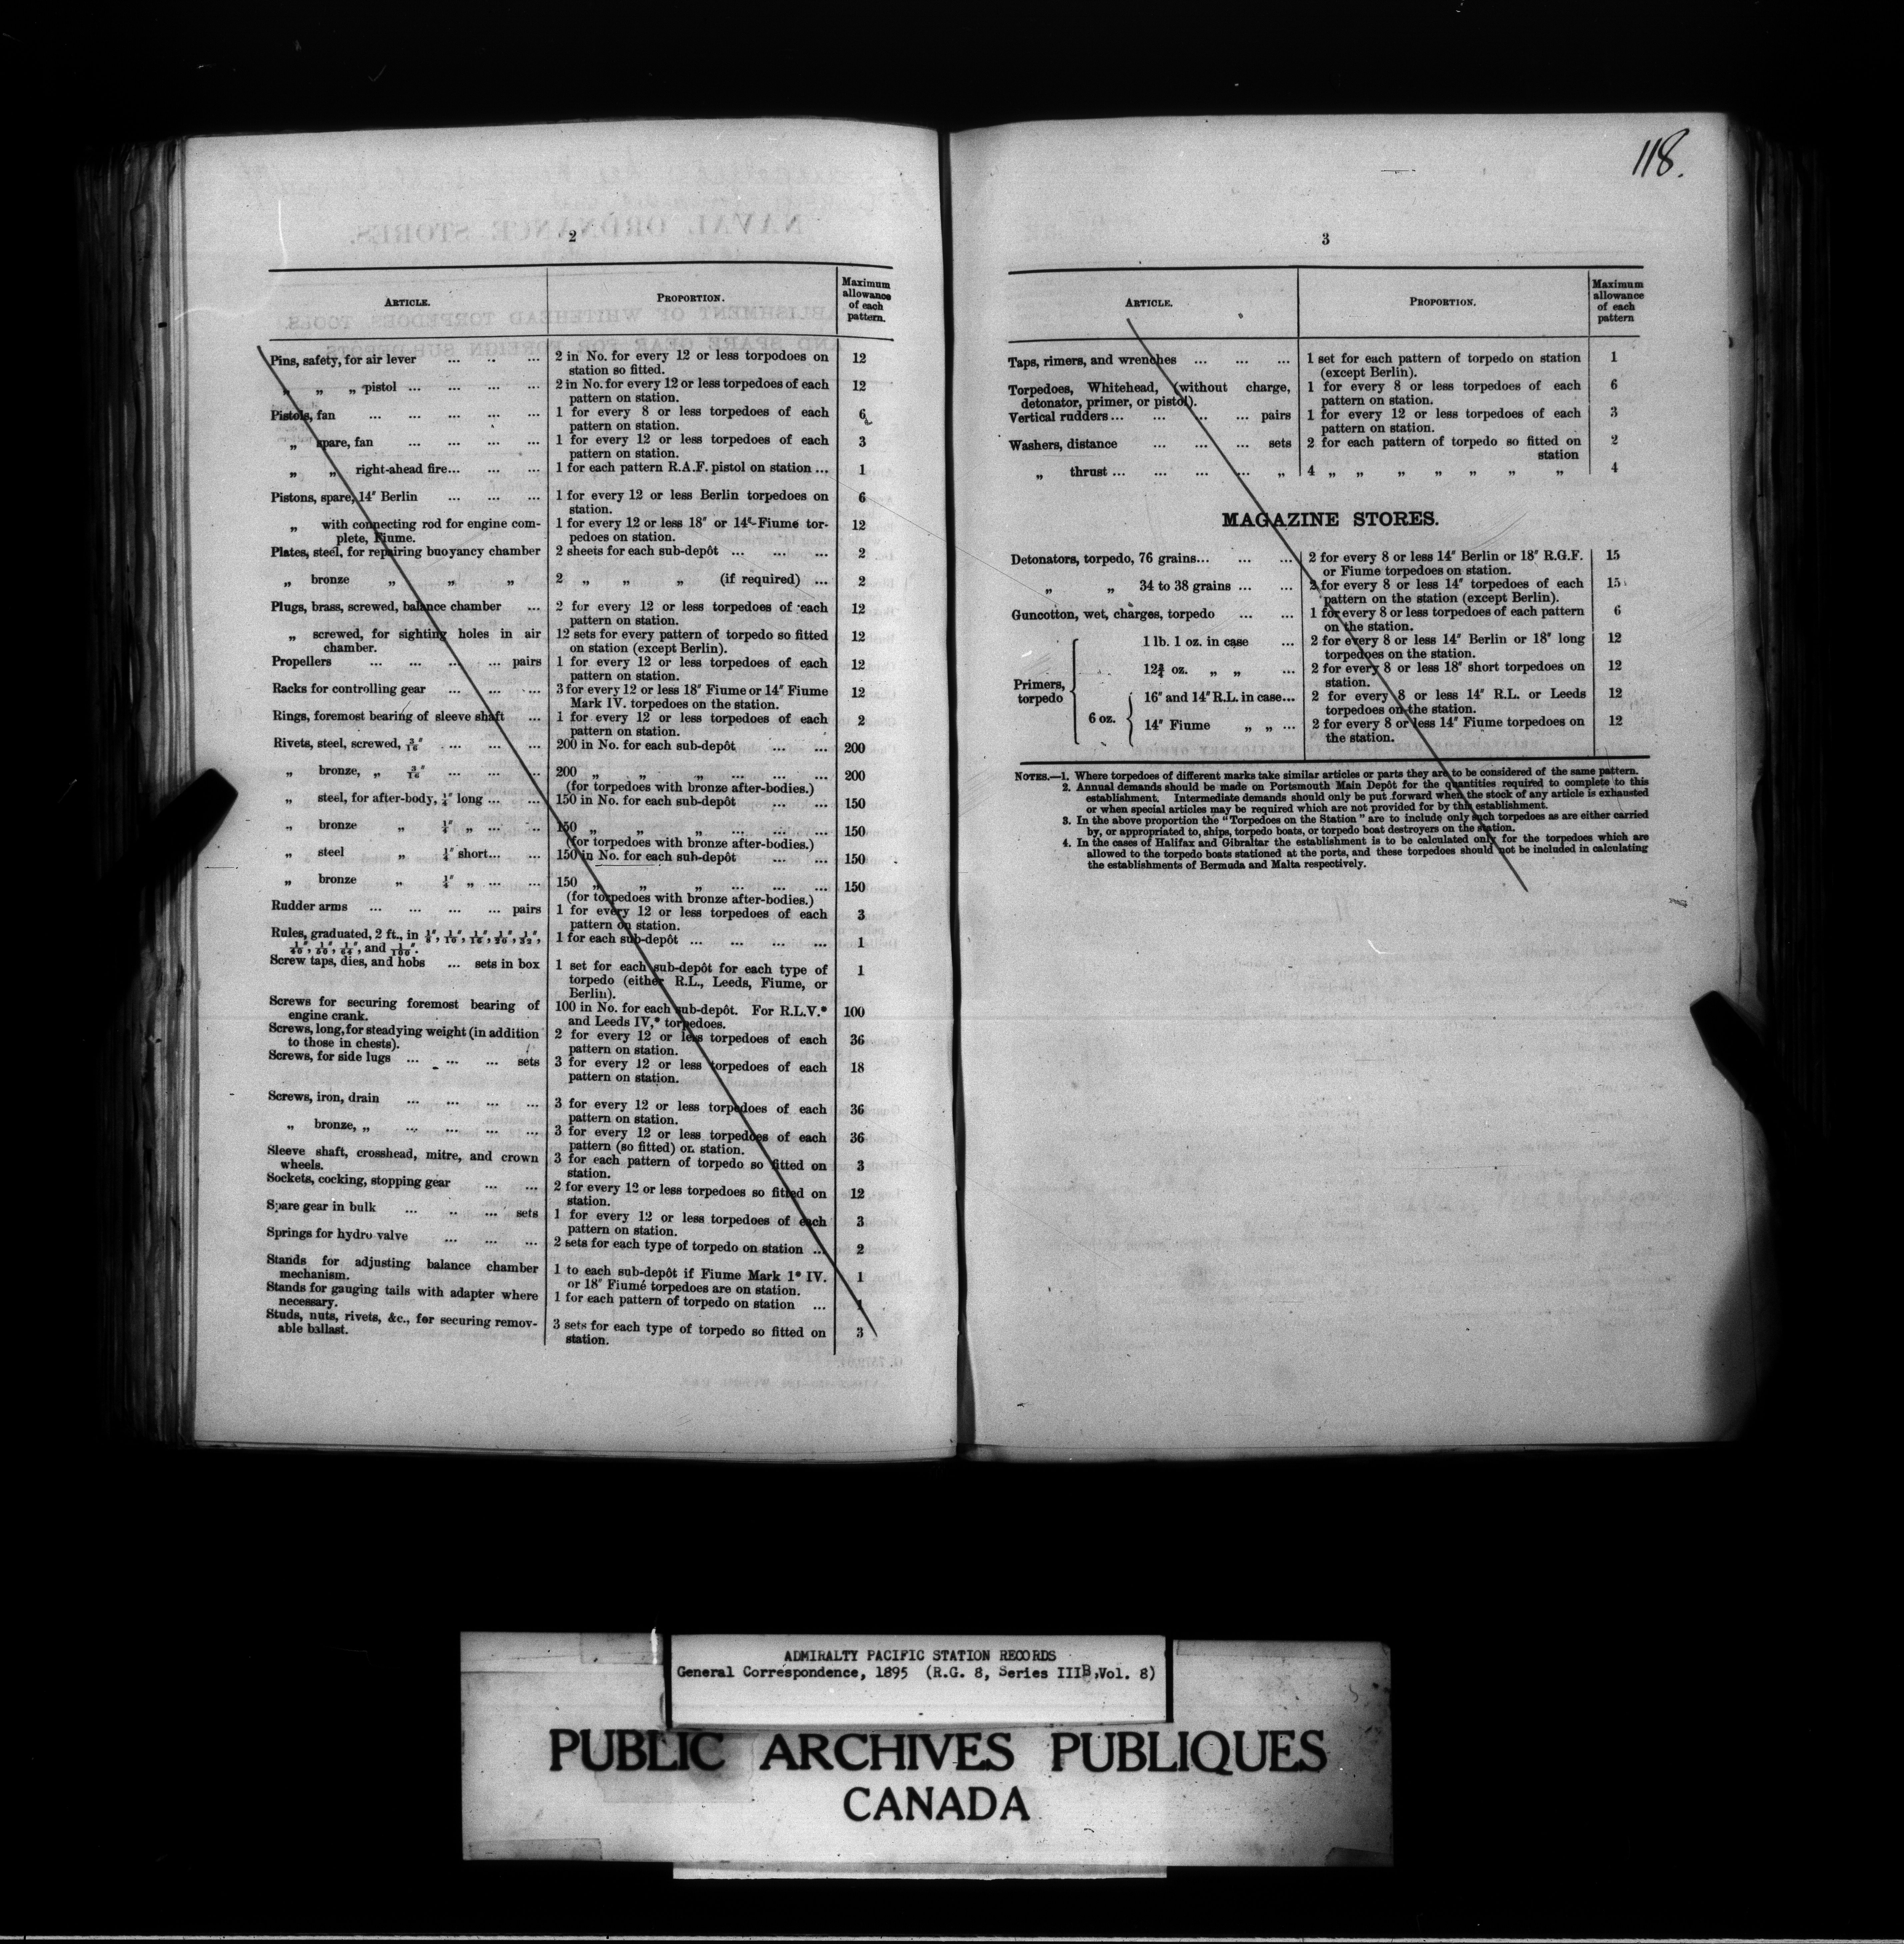 118.
2
ARTICLE. PROPORTION. Maximum allowance of each pattern.
Pins, safety, for air lever ... .. ... 2 in No. for every 12 or less torpodoes on 12
station so fitted.
„ „ „ pistol ... ... ... ... 2 in No. for every 12 or less torpedoes of each 12
pattern on station.
Pistols, fan ... ... ... ... ... 1 for every 8 or less torpedoes of each 6
pattern on station.
„ spare, fan ... ... ... ... 1 for every 12 or less torpedoes of each 3
pattern on station.
„ „ right-ahead fire... ... ... 1 for each pattern R.A.F. pistol on station ... 1
Pistons, spare, 14″ Berlin ... ... ... 1 for every 12 or less Berlin torpedoes on 6
station.
„ with connecting rod for engine com- 1 for every 12 or less 18″ or 14″ Fiume tor- 12
plete, Fiume. pedoes on station.
Plates, steel, for repairing buoyancy chamber 2 sheets for each sub-depôt ... ... ... 2
„ bronze „ „ „ 2 „ „ „ (if required) ... 2
Plugs, brass, screwed, balance chamber ... 2 for every 12 or less torpedoes of each 12
pattern on station.
„ screwed, for sighting holes in air 12 sets for every pattern of torpedo so fitted 12
chamber. on station (except Berlin).
Propellers ... ... ... ... pairs 1 for every 12 or less torpedoes of each 12
pattern on station.
Racks for controlling gear ... ... ... 3 for every 12 or less 18″ Fiume or 14″ Fiume 12
Mark IV. torpedoes on the station.
Rings, foremost bearing of sleeve shaft ... 1 for every 12 or less torpedoes of each 2
pattern on station.
Rivets, steel, screwed, 3/16″ ... ... ... 200 in No. for each sub-depôt ... ... 200
„ bronze, „ 3/16″ ... ... ... 200 „ „ „ ... ... ... 200
(for torpedoes with bronze after-bodies.)
„ steel, for after-body, ¼″ long ... ... 150 in No. for each sub-depôt ... ... 150
„ bronze „ ¼″ „ ... .. 150 „ „ „ ... ... ... 150
(for torpedoes with bronze after-bodies.)
„ steel „ ¼″ short... ... 150 in No. for each sub-depôt ... ... 150
„ bronze „ ¼″ „ ... ... 150 „ „ „ ... ... ... 150
(for torpedoes with bronze after-bodies.)
Rudder arms ... ... ... ... pairs 1 for every 12 or less torpedoes of each 3
pattern on station.
Rules, graduated, 2 ft., in 1/8″, 1/10″, 1/16″, 1/20″, 1/32″, 1 for each sub-depôt ... ... ... ... 1
1/40″, 1/50″, 1/64″, and 1/100″.
Screw taps, dies, and hobs ... sets in box 1 set for each sub-depôt for each type of 1
torpedo (either R.L., Leeds, Fiume, or
Berlin).
Screws for securing foremost bearing of 100 in No. for each sub-depôt. For R.L.V.* 100
engine crank. and Leeds IV,* torpedoes.
Screws, long, for steadying weight (in addition 2 for every 12 or less torpedoes of each 36
to those in chests). pattern on station.
Screws, for side lugs ... ... ... sets 3 for every 12 or less torpedoes of each 18
pattern on station.
Screws, iron, drain ... ... ... ... 3 for every 12 or less torpedoes of each 36
pattern on station.
„ bronze, „ ... ... ... ... 3 for every 12 or less torpedoes of each 36
pattern (so fitted) on station.
Sleeve shaft, crosshead, mitre, and crown 3 for each pattern of torpedo so fitted on 3
wheels. station.
Sockets, cocking, stopping gear ... ... 2 for every 12 or less torpedoes so fitted on 12
station.
Spare gear in bulk ... .. ... sets 1 for every 12 or less torpedoes of each 3
pattern on station.
Springs for hydro valve ... ... ... 2 sets for each type of torpedo on station ... 2
Stands for adjusting balance chamber 1 to each sub-depôt if Fiume Mark 1* IV. 1
mechanism. or 18″ Fiume torpedoes are on station.
Stands for gauging tails with adapter where 1 for each pattern of torpedo on station ... 1
necessary.
Studs, nuts, rivets, &c., for securing remov- 3 sets for each type of torpedo so fitted on 3
able ballast. station.
3
ARTICLE. PROPORTION. Maximum allowance of each pattern
Taps, rimers, and wrenches ... ... ... 1 set for each pattern of torpedo on station 1
(except Berlin).
Torpedoes, Whitehead, (without charge, 1 for every 8 or less torpedoes of each 6
detonator, primer, or pistol). pattern on station.
Vertical rudders ... ... ... ... pairs 1 for every 12 or less torpedoes of each 3
pattern on station.
Washers, distance ... ... ... sets 2 for each pattern of torpedo so fitted on 2
station
„ thrust ... ... ... ... „ 4 „ „ „ „ „ „ „ 4
MAGAZINE STORES.
Detonators, torpedo, 76 grains... ... ... 2 for every 8 or less 14″ Berlin or 18″ R.G.F. 15
or Fiume torpedoes on station.
„ „ 34 to 38 grains ... ... 2 for every 8 or less 14″ torpedoes of each 15
pattern on the station (except Berlin).
Guncotton, wet, charges, torpedo ... ... 1 for every 8 or less torpedoes of each pattern 6
on the station.
Primers, torpedo
1 lb. 1 oz. in case ... 2 for every 8 or less 14″ Berlin or 18″ long 12
torpedoes on the station.
12¾ oz. „ „ ... 2 for every 8 or less 18″ short torpedoes on 12
station.
6 oz.
16″ and 14″ R.L. in case... 2 for every 8 or less 14″ R.L. or Leeds 12
torpedoes on the station.
14″ Fiume „ „ ... 2 for every 8 or less 14″ Fiume torpedoes on 12
the station.
NOTES.—1. Where torpedoes of different marks take similar articles or parts they are to be considered of the same pattern.
2. Annual demands should be made on Portsmouth Main Depôt for the quantities required to complete to this
establishment. Intermediate demands should only be put forward when the stock of any article is exhausted
or when special articles may be required which are not provided for by this establishment.
3. In the above proportion the "Torpedoes on the Station" are to include only such torpedoes as are either carried
by, or appropriated to, ships, torpedo boats, or torpedo boat destroyers on the station.
4. In the cases of Halifax and Gibraltar the establishment is to be calculated only for the torpedoes which are
allowed to the torpedo boats stationed at the ports, and these torpedoes should not be included in calculating
the establishments of Bermuda and Malta respectively.
ADMIRALTY PACIFIC STATION RECORDS
General Correspondence, 1895 (R.G. 8, Series IIIB, Vol. 8)
PUBLIC ARCHIVES PUBLIQUES
CANADA